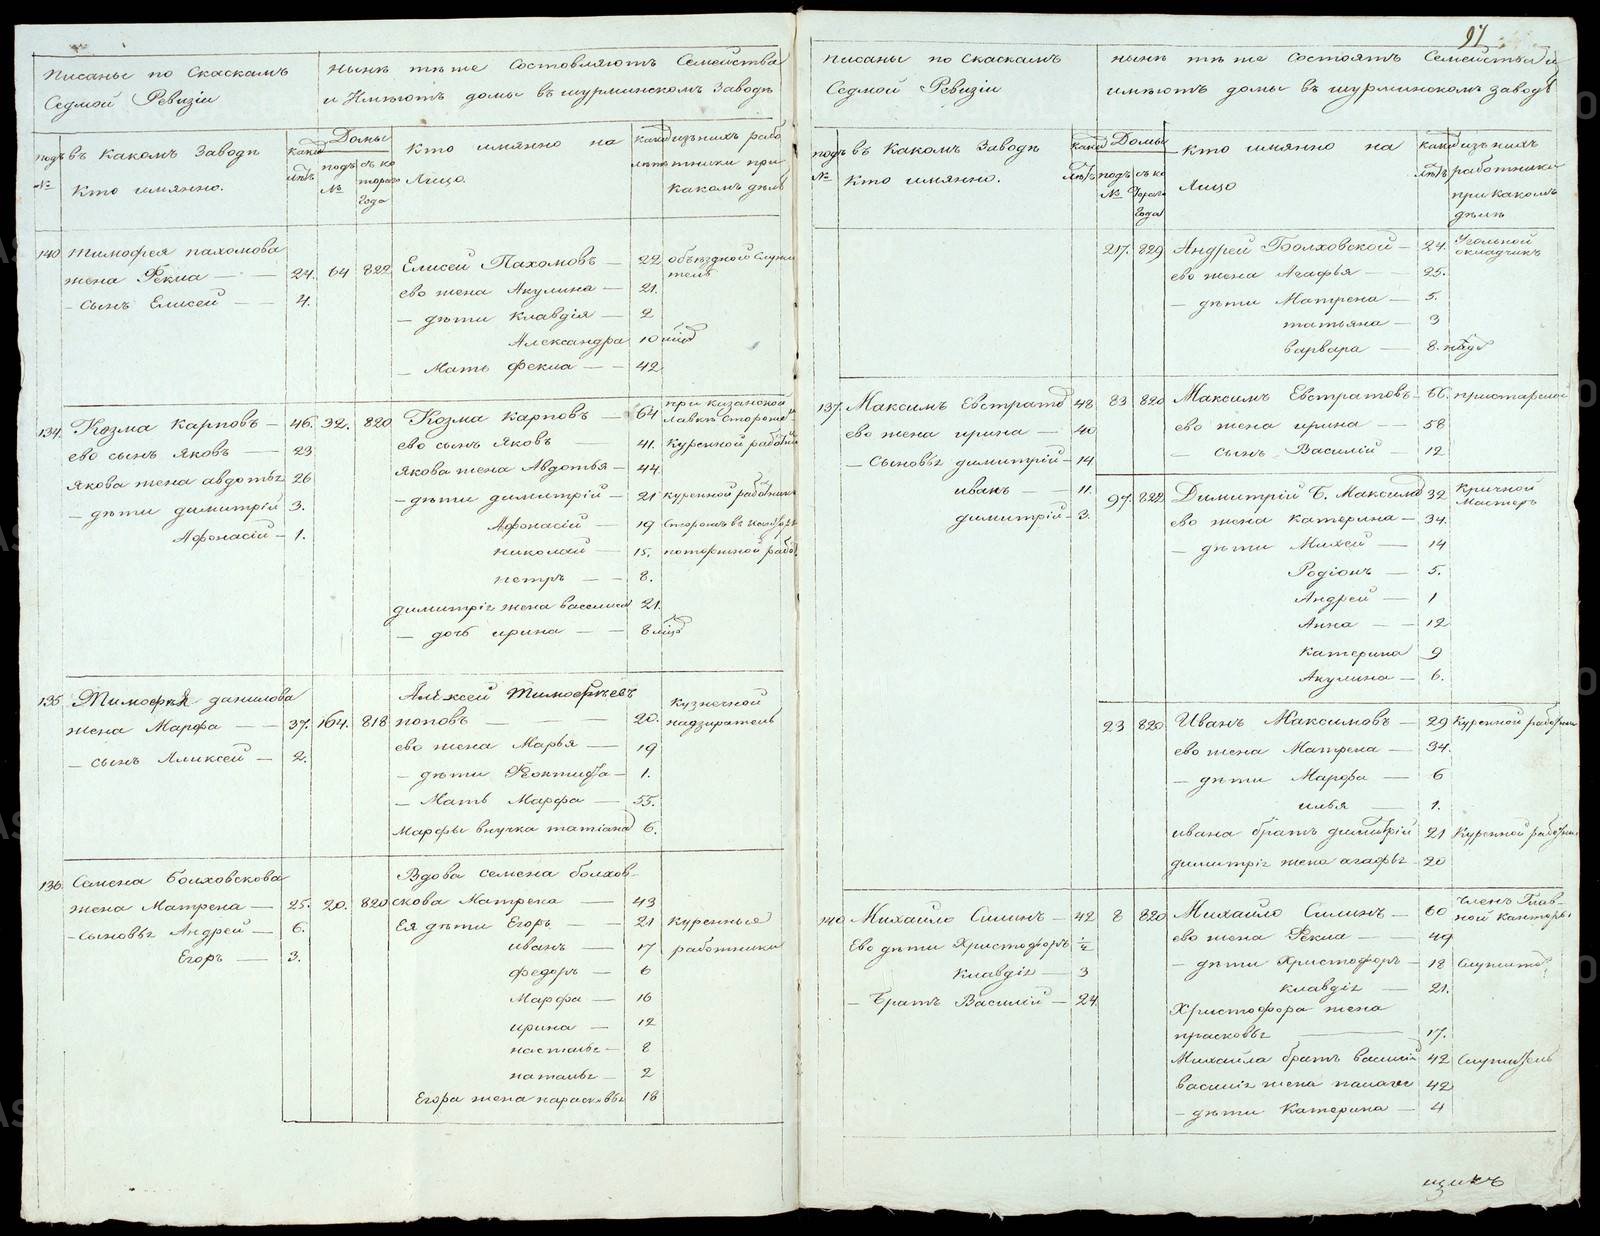 писаны по Скаскамъ
Седмой Ревизіи
нынѣ тѣже Состовляютъ Семейства
и Имѣютъ домы въ шурминскомъ Заводѣ
подъ №
въ Какомъ Заводѣ
Кто имянно.
Домы
подъ №
съ ко
тораго
года
Кто имянно на
Лицо.
изъ нихъ рабо
тники при
какомъ дѣлѣ
140 тимофея пахомова
жена Фекла — 24. 64 822 Елисей Пахомовъ — 22 объѣздной Служи
тель
— сынъ Елисей — 4.
ево жена Акулина — 21.
— дѣти Клавдія — 2
Александра 10
— Мать Фекла — 42
134. Козма Карповъ — 46. 32. 820 Козма Карповъ — 64 при казанской
лавкѣ
ево сынъ Яковъ — 23 ево сынъ Яковъ — 41. Куренной
Якова жена авдотья 26 Якова жена Авдотья — 44.
— дѣти димитрій 3. — дѣти димитрій — 21 куренной
Афонасій — 1. Афонасій — 19
николай — 15.
петръ — 8.
жена василиса 21.
— дочь ирина — 8
135 Тимофея данилова Алексей Тимофѣевъ
жена Марфа — 37. 164. 818 поповъ — 20. Кузнечной
надзиратель
— сынъ Аликсей — 2. ево жена Марья — 19
— дѣти — 1.
— Мать Марфа — 55.
Марфы внучка татіана 6.
136 Семена Болховскова Вдова семена болхов-
жена Матрена — 25. 20. 820 скова Матрена — 43
— сыновья Андрей — 6. Ея дѣти Егоръ — 21 куренныя
Егоръ — 3. иванъ — 17 работники
федоръ — 6
Марфа — 16
ирина — 12
настасья — 8
наталья — 2
Егора жена парасковья 18
97
писаны по Скаскамъ
Седмой Ревизіи
нынѣ тѣже состоятъ Семейства и
имѣютъ домы въ шурминскомъ заводѣ
подъ №
въ Какомъ Заводѣ
Кто имянно.
Домы
подъ №
года
Кто имянно на
Лицо
изъ нихъ
работники
при какомъ
дѣлѣ
217. 829 Андрей Болховской — 24. Угольной
складчикъ
ево жена Агафья — 25.
— дѣти Матрена — 5.
татьяна — 3
варвара — 8.
137. Максимъ Евстратов 48 83 820 Максимъ Евстратовъ — 66.
ево жена ирина — 40 ево жена ирина — 58
— сыновья димитрій — 14 — сынъ Василій — 12
иванъ — 11.
димитрій — 3.
97. 822 Димитрій Б. Максимов 32 Кричной
Мастеръ
ево жена Катерина — 34.
— дѣти Михей — 14
Родіонъ — 5.
Андрей — 1
Анна — 12
Катерина 9
Акулина — 6.
23 820 Иванъ Максимовъ — 29 Куренной
ево жена Матрена — 34.
— дѣти Марфа — 6
илья — 1.
ивана братъ димитрій 21 Куренной
жена агафья 20
140 Михайло Силинъ — 42 8 820 Михайло Силинъ — 60 Членъ Глав-
ной Канторы
Ево дѣти Христофоръ ево жена Фекла — 49
Клавдія — 3 — дѣти Христофоръ — 18
клавдія — 21.
— Братъ Василій — 24 Христофора жена
прасковья — 17.
Михайла братъ василій 42 служитель
жена 42
— дѣти Катерина — 4